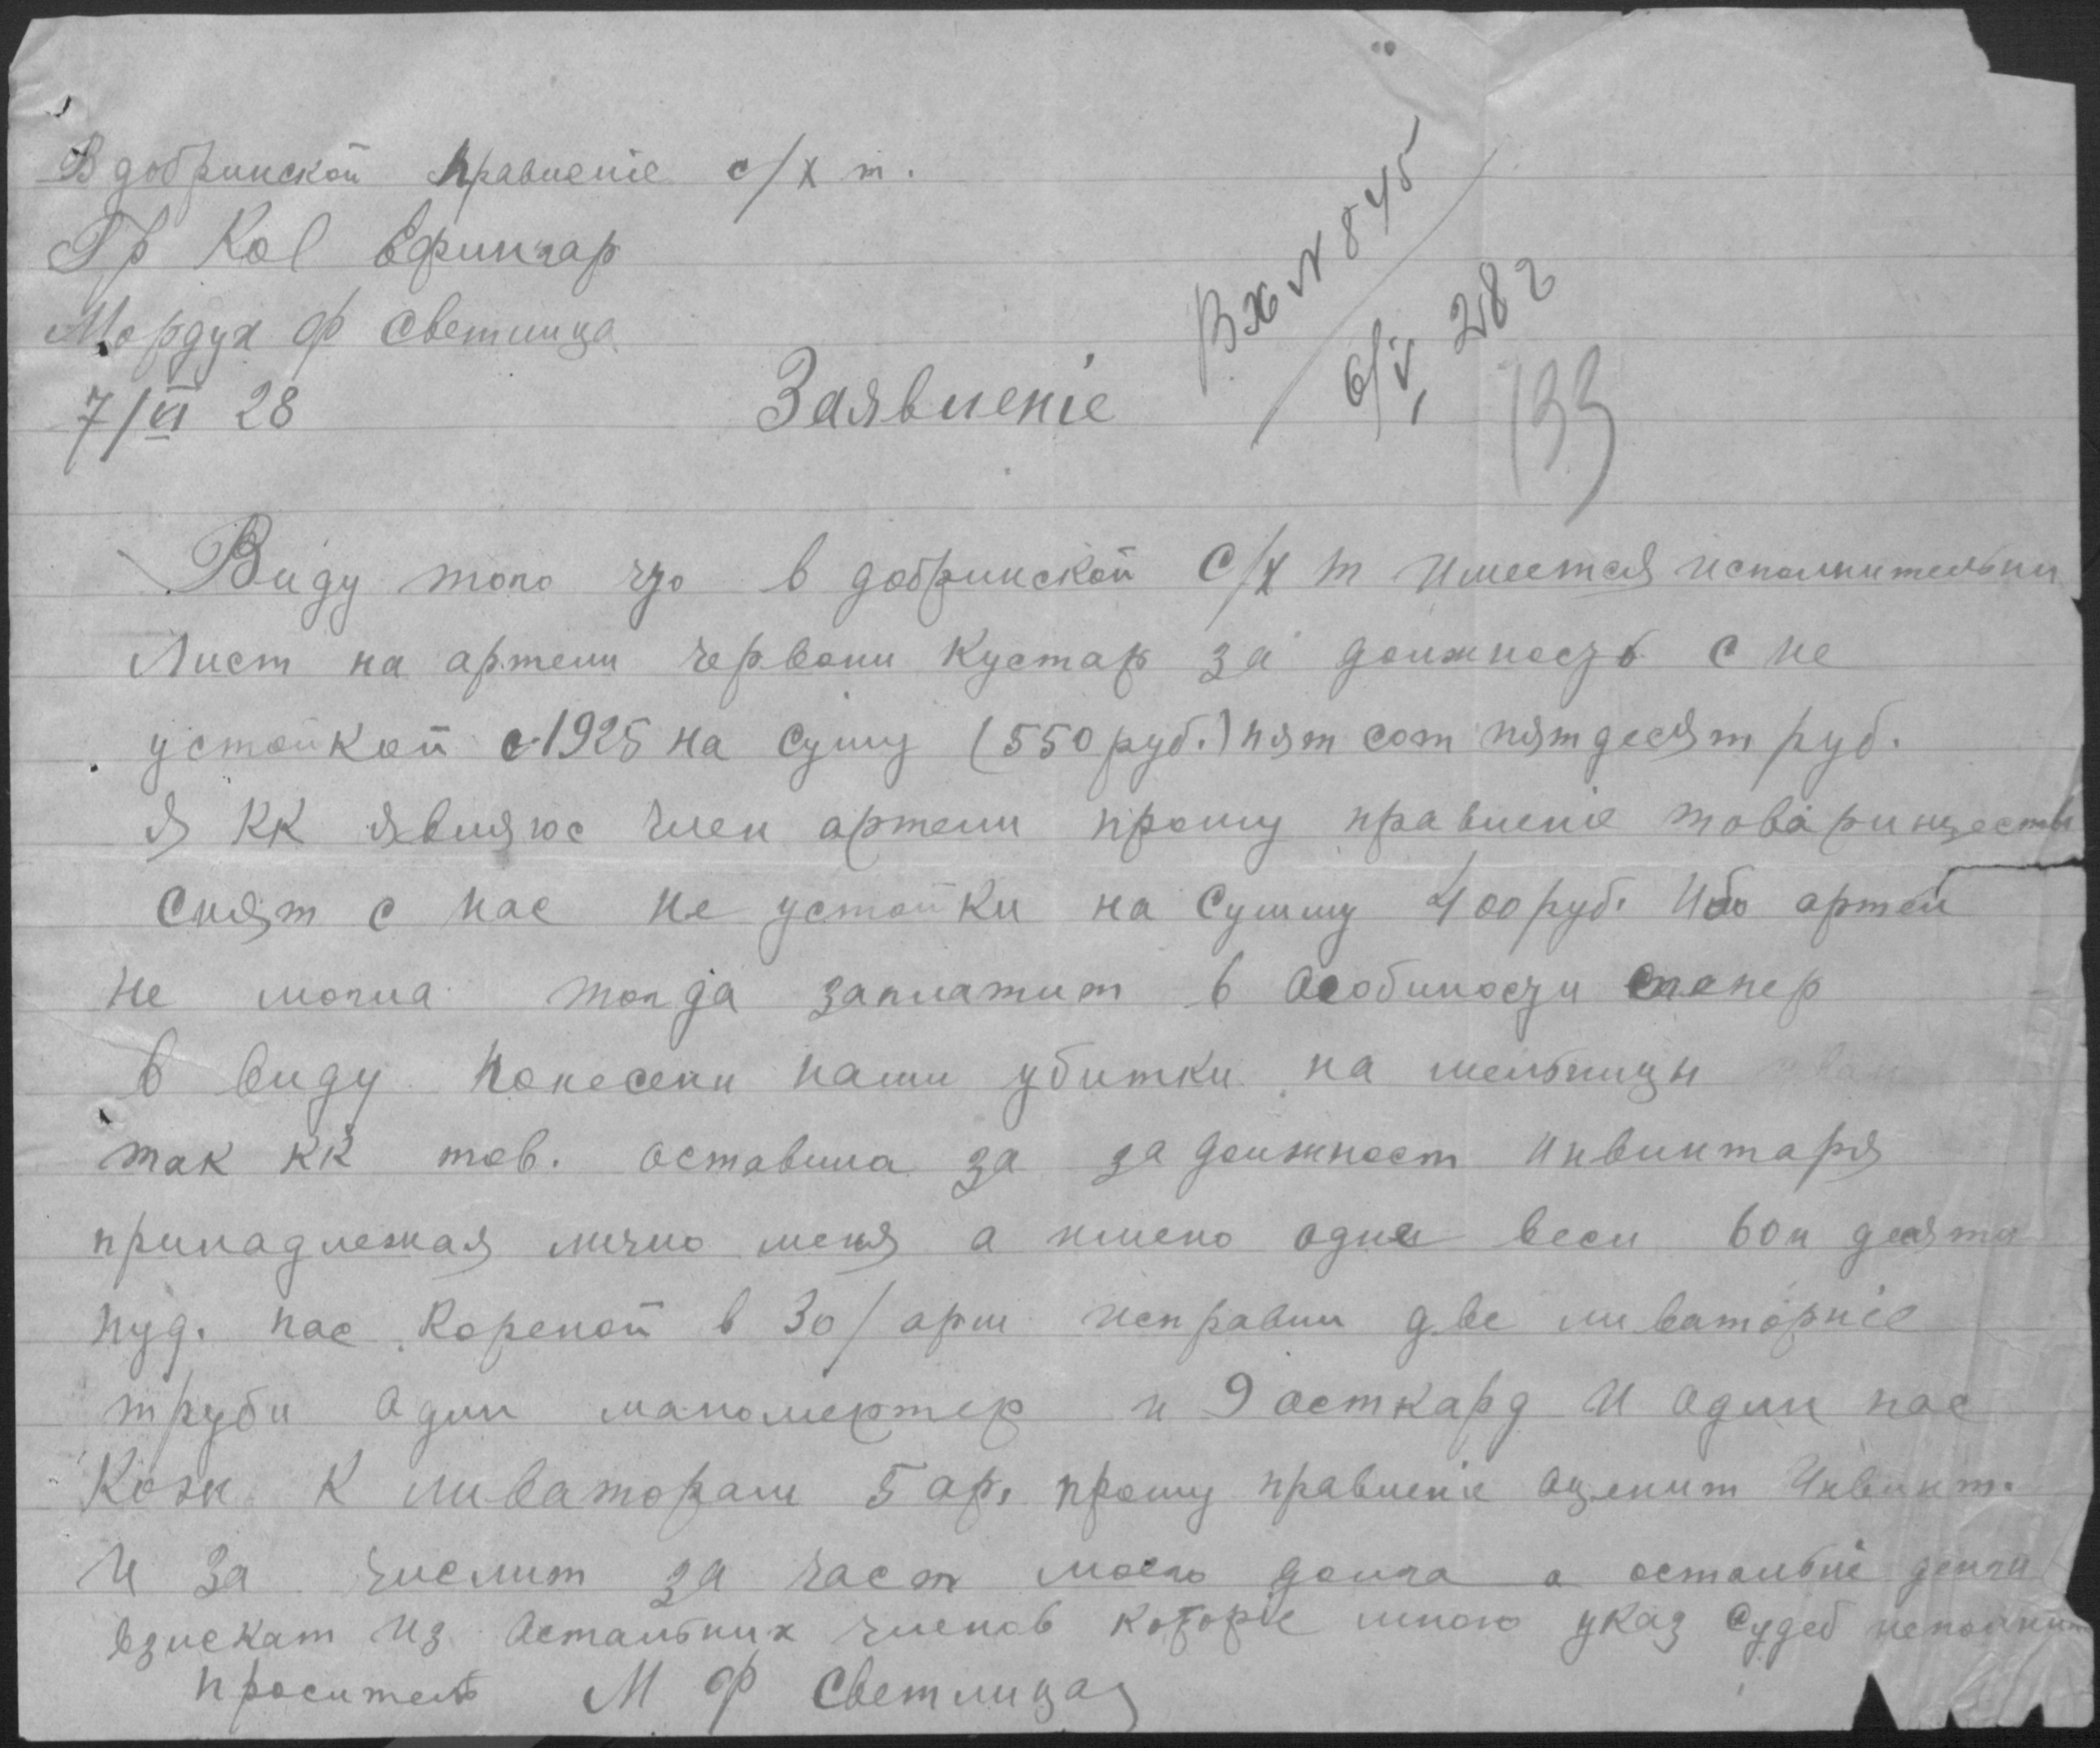 В добринской Правленіе с/х т.
Гр Кол Ефингар
Мордух Ф Светлица
7/VI 28
Вх № 845
6/VI 28 г
133
Заявленіе
Виду того что в добринской С/х т имеется исполнительни
Лист на артели червони Кустар за должность с не
устойкой с 1925 на сумму (550 руб.) пят сот пятдесят руб.
Я КК являюс член артели прошу правленіе товарищества
снят с нас не устойки на сумму 400 руб. Ибо артел
не могла тогда заплатит в особиности тепер
в виду понесени нами убитки на мельници
так КК тов. оставила за за должност инвинтаря
принадлежая лично меня а имено одни веси
пуд. пас Кореной в 30/арш исправни две ливаторніе
труби один манометер и 9 осткард и один пас
Кожи К ливаторам 5 ар. прошу правленіе оценит Инвинт.
и за числит за част моего долга а остальніе денги
взискат из остальних членов которіе мною указ судеб исполнит
проситель М Ф Светлица